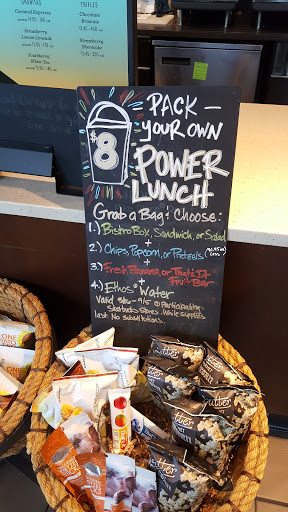 GRANITAS
Caramel Espresso
Strawberry
Lemon Limeade
Teavana® Youthberry
White Tea
TRIFLES
Chocolate
Brownie
Strawberry
Shortcake
PACK —
YOUR OWN
$8
POWER
LUNCH
Grab a Bag & Choose:
1.) Bistro Box, Sandwich, or Salad
+
2.) Chips, Popcorn, or Pretzels
+
3.) Fresh Banana, or That's It
Fruit Bar
+
4.) Ethos® Water
@ Participating
Starbucks Stores. While supplies
last. No substitutions.